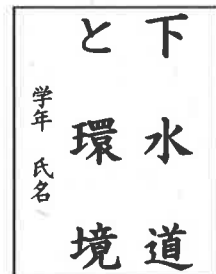 下水道
と環境
学年 氏名